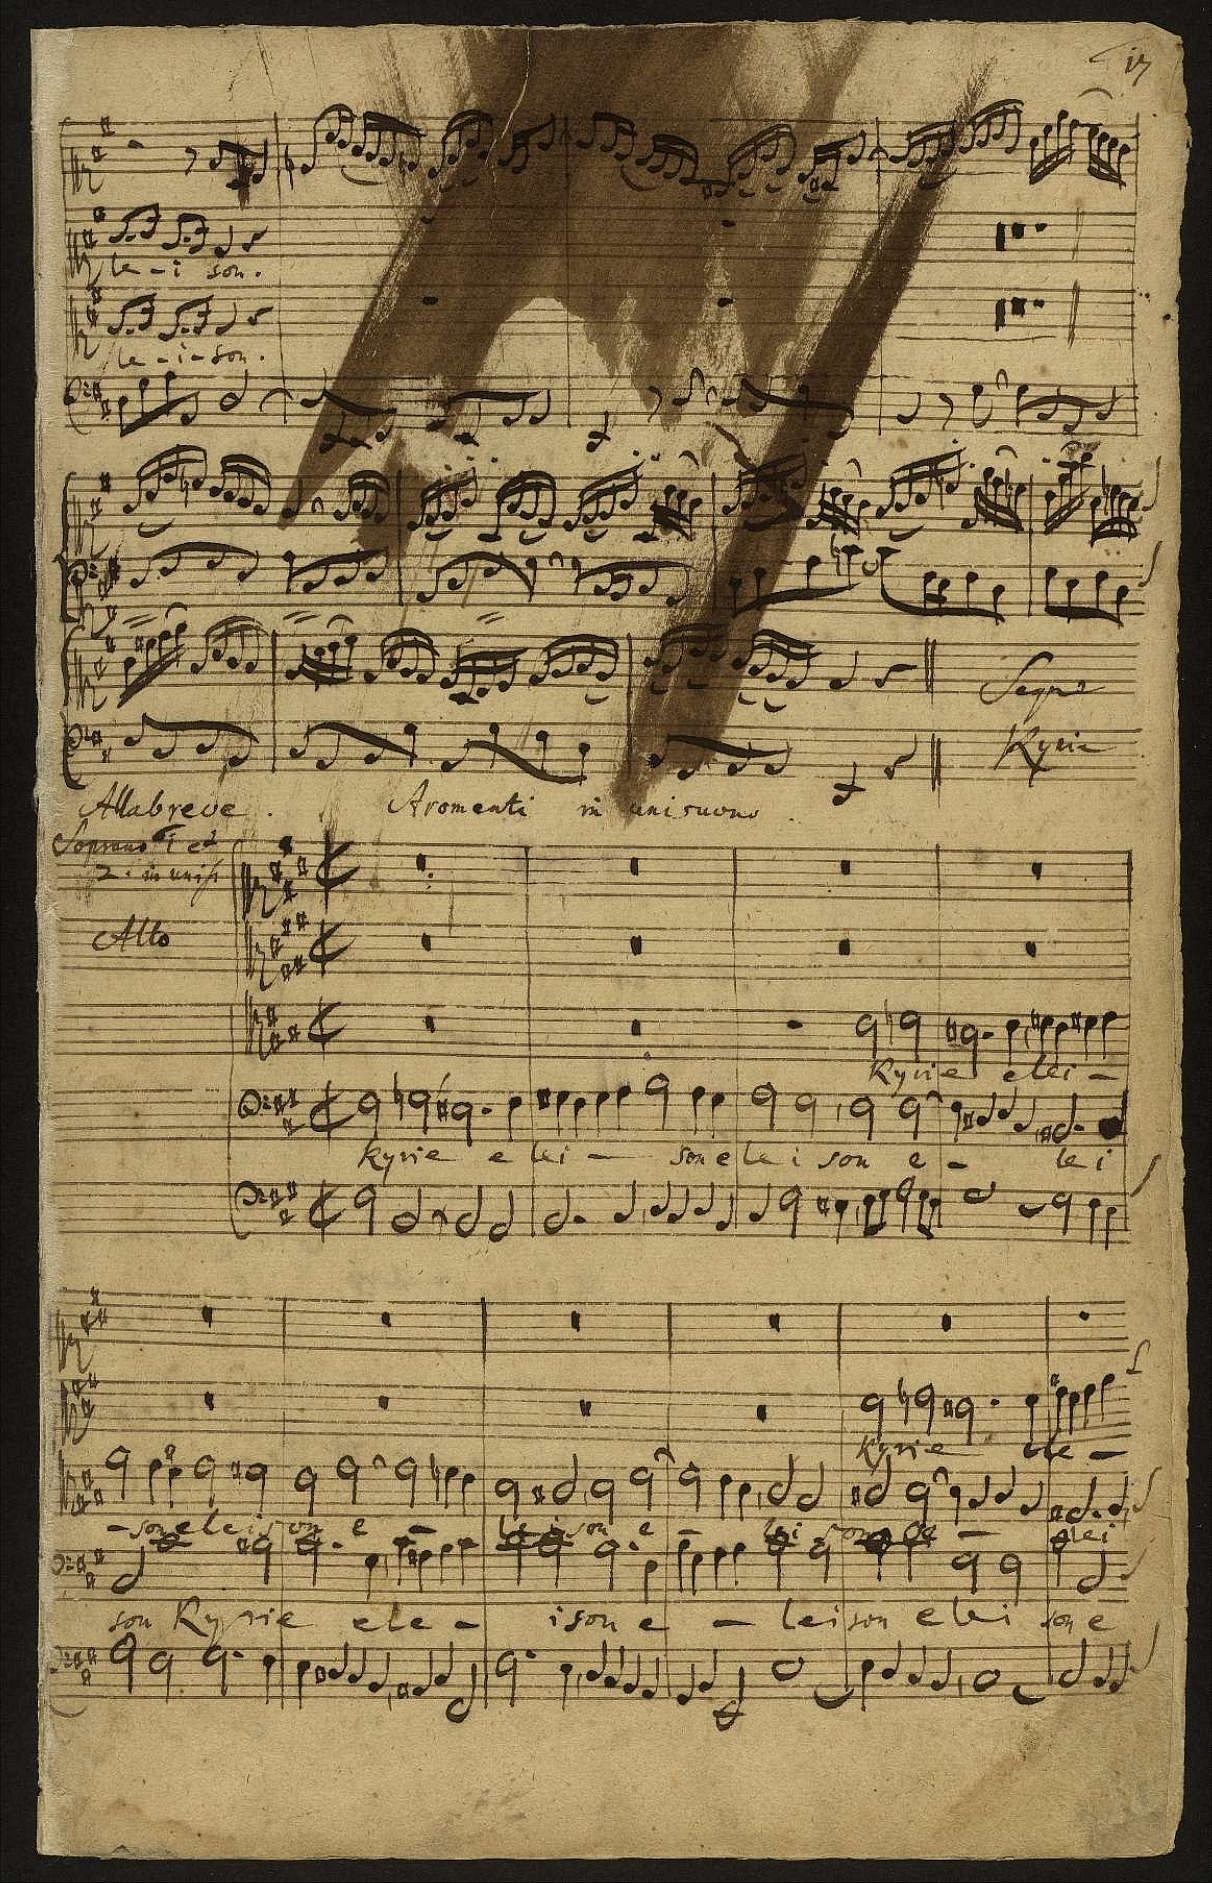 le - i son.
le - i - son.
Segue
Kyrie
Allabreve. Stromenti in unisuono.
Soprano 1 et
2. in unis
Alto
Kyrie elei -
Kyrie e lei - son e le i son e - le i
Kyrie ele -
- son e leison e - le ison e - lei son e - elei
son Kyrie ele - ison e - leison elei son e